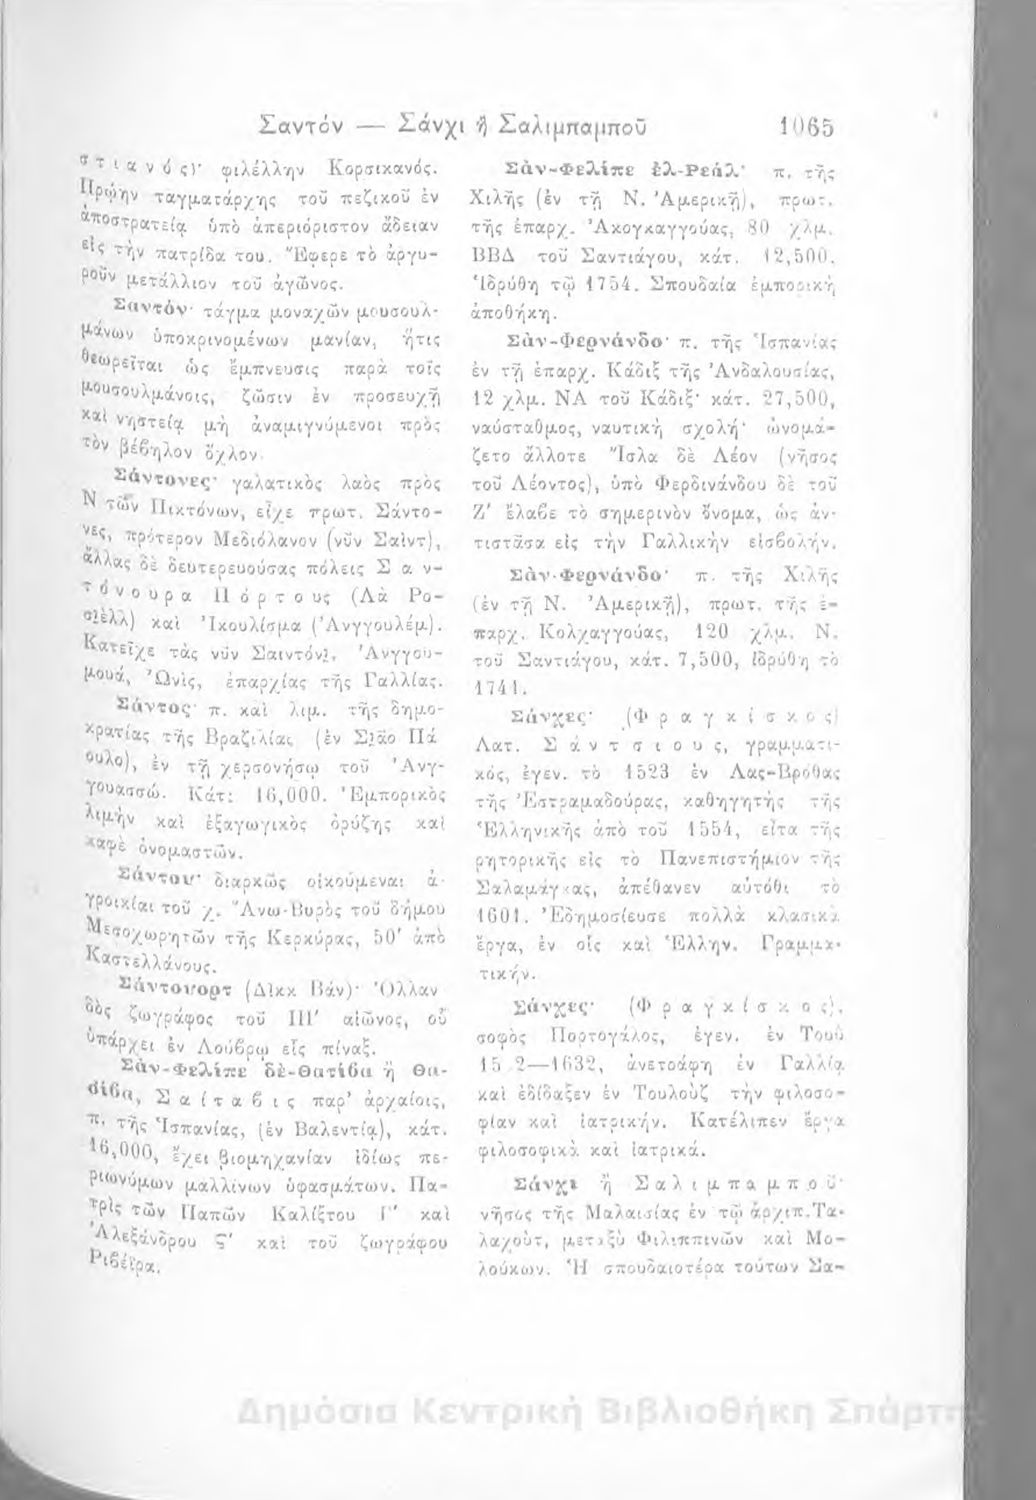 Σαντόν — Σάνχι ἢ Σαλιμπαμποῦ 1065
στιανός)· φιλέλλην Κορσικανός.
Πρῴην ταγματάρχης τοῦ πεζικοῦ ἐν
ἀποστρατείᾳ ὑπὸ ἀπεριόριστον ἄδειαν
εἰς τὴν πατρίδα του. Ἔφερε τὸ ἀργυ-
ροῦν μετάλλιον τοῦ ἀγῶνος.
Σαντόν· τάγμα μοναχῶν μουσουλ-
μάνων ὑποκρινομένων μανίαν, ἥτις
θεωρεῖται ὡς ἔμπνευσις παρὰ τοῖς
μουσουλμάνοις, ζῶσιν ἐν προσευχῇ
καὶ νηστείᾳ μὴ ἀναμιγνύμενοι πρὸς
τὸν βέβηλον ὄχλον.
Σάντονες· γαλατικὸς λαὸς πρὸς
Ν τῶν Πικτόνων, εἶχε πρωτ. Σάντο-
νες, πρότερον Μεδιόλανον (νῦν Σαὶντ),
ἄλλας δὲ δευτερευούσας πόλεις Σαν-
τόνουρα Πόρτους (Λὰ Ρο-
σιὲλλ) καὶ Ἰκουλίσμα (Ἀνγγουλέμ).
Κατεῖχε τὰς νῦν Σαιντόνζ, Ἀνγγου-
μουά, Ὠνίς, ἐπαρχίας τῆς Γαλλίας.
Σάντος· π. καὶ λιμ. τῆς δημο-
κρατίας τῆς Βραζιλίας (ἐν Σιᾶο Πά
ουλο), ἐν τῇ χερσονήσῳ τοῦ Ἀνγ-
γουασσώ. Κάτ: 16,000. Ἐμπορικὸς
λιμὴν καὶ ἐξαγωγικὸς ὀρύζης καὶ
καφὲ ὀνομαστῶν.
Σάντου· διαρκῶς οἰκούμεναι ἀ-
γροικίαι τοῦ χ. Ἄνω-Βυρὸς τοῦ δήμου
Μεσοχωρητῶν τῆς Κερκύρας, 50' ἀπὸ
Καστελλάνους.
Σάντουορτ (Δὶκκ Βάν)· Ὁλλαν
δὸς ζωγράφος τοῦ ΙΙΙ' αἰῶνος, οὗ
ὑπάρχει ἐν Λούβρῳ εἷς πίναξ.
Σὰν-Φελίπε δὲ-Θατίβα ἢ Θα-
δίβα, Σαίταβις παρ' ἀρχαίοις,
π. τῆς Ἱσπανίας, (ἐν Βαλεντίᾳ), κάτ.
16,000, ἔχει βιομηχανίαν ἰδίως πε-
ριωνύμων μαλλίνων ὑφασμάτων. Πα-
τρὶς τῶν Παπῶν Καλίξτου Γ' καὶ
Ἀλεξάνδρου Ϛ' καὶ τοῦ ζωγράφου
Ριβέιρα.
Σὰν-Φελίπε ἐλ-Ρεάλ· π. τῆς
Χιλῆς (ἐν τῇ Ν. Ἀμερικῇ), πρωτ.
τῆς ἐπαρχ. Ἀκογκαγγούας, 80 χλμ.
ΒΒΔ τοῦ Σαντιάγου, κάτ. 12,500.
Ἱδρύθη τῷ 1754. Σπουδαία ἐμπορικὴ
ἀποθήκη.
Σὰν-Φερνάνδο· π. τῆς Ἱσπανίας
ἐν τῇ ἐπαρχ. Κάδιξ τῆς Ἀνδαλουσίας,
12 χλμ. ΝΑ τοῦ Κάδιξ· κάτ. 27,500,
ναύσταθμος, ναυτικὴ σχολή· ὠνομά-
ζετο ἄλλοτε Ἴσλα δὲ Λέον (νῆσος
τοῦ Λέοντος), ὑπὸ Φερδινάνδου δὲ τοῦ
Ζ' ἔλαβε τὸ σημερινὸν ὄνομα, ὡς ἀν-
τιστᾶσα εἰς τὴν Γαλλικὴν εἰσβολήν.
Σὰν-Φερνάνδο· π. τῆς Χιλῆς
(ἐν τῇ Ν. Ἀμερικῇ), πρωτ. τῆς ἐ-
παρχ. Κολχαγγούας, 120 χλμ. Ν.
τοῦ Σαντιάγου, κάτ. 7,500, ἱδρύθη τὸ
1741.
Σάνχες· (Φραγκίσκος)
Λατ. Σάντσιους, γραμματι-
κός, ἐγεν. τὸ 1523 ἐν Λας-Βρόθας
τῆς Ἐστραμαδούρας, καθηγητὴς τῆς
Ἑλληνικῆς ἀπὸ τοῦ 1554, εἶτα τῆς
ρητορικῆς εἰς τὸ Πανεπιστήμιον τῆς
Σαλαμάγκας, ἀπέθανεν αὐτόθι τὸ
1601. Ἐδημοσίευσε πολλὰ κλασικὰ
ἔργα, ἐν οἷς καὶ Ἑλλην. Γραμμα-
τικήν.
Σάνχες· (Φραγκίσκος),
σοφὸς Πορτογάλος, ἐγεν. ἐν Τουὺ
15 2—1632, ἀνετράφη ἐν Γαλλίᾳ
καὶ ἐδίδαξεν ἐν Τουλοὺζ τὴν φιλοσο-
φίαν καὶ ἰατρικήν. Κατέλιπεν ἔργα
φιλοσοφικὰ καὶ ἰατρικά.
Σάνχι ἢ Σαλιμπαμποῦ·
νῆσος τῆς Μαλαισίας ἐν τῷ ἀρχιπ. Τα-
λαχούτ, μεταξὺ Φιλιππινῶν καὶ Μο-
λούκων. Ἡ σπουδαιοτέρα τούτων Σα-
Δημόσια Κεντρική Βιβλιοθήκη Σπάρτη